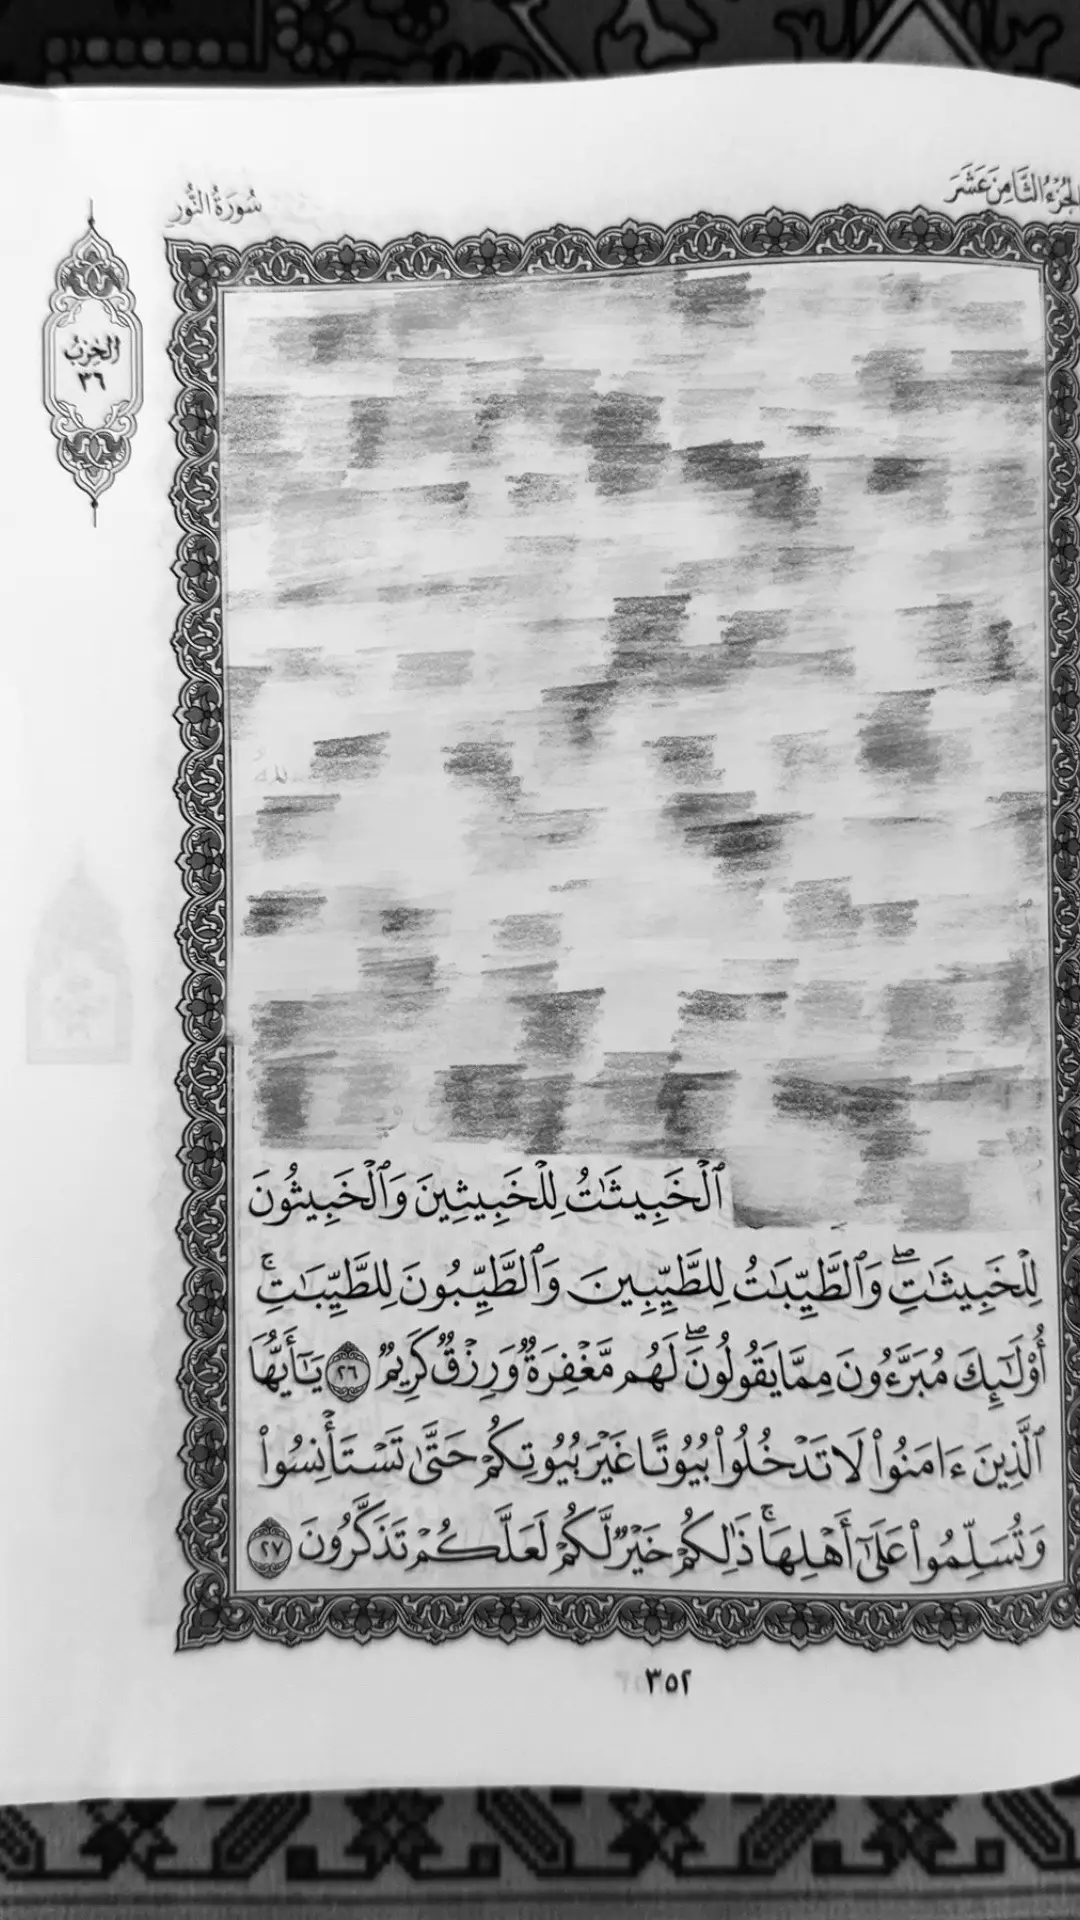 الجزء الثامن عشر
سُورَةُ النُّورِ
الحِزْبُ
٣٦
ٱلْخَبِيثَٰتُ لِلْخَبِيثِينَ وَٱلْخَبِيثُونَ
لِلْخَبِيثَٰتِۖ وَٱلطَّيِّبَٰتُ لِلطَّيِّبِينَ وَٱلطَّيِّبُونَ لِلطَّيِّبَٰتِۚ
أُوْلَٰٓئِكَ مُبَرَّءُونَ مِمَّا يَقُولُونَۖ لَهُم مَّغْفِرَةٌ وَرِزْقٌ كَرِيمٌ ٢٦ يَٰٓأَيُّهَا
ٱلَّذِينَ ءَامَنُواْ لَا تَدْخُلُواْ بُيُوتًا غَيْرَ بُيُوتِكُمْ حَتَّىٰ تَسْتَأْنِسُواْ
وَتُسَلِّمُواْ عَلَىٰٓ أَهْلِهَاۚ ذَٰلِكُمْ خَيْرٌ لَّكُمْ لَعَلَّكُمْ تَذَكَّرُونَ ٢٧
٣٥٢